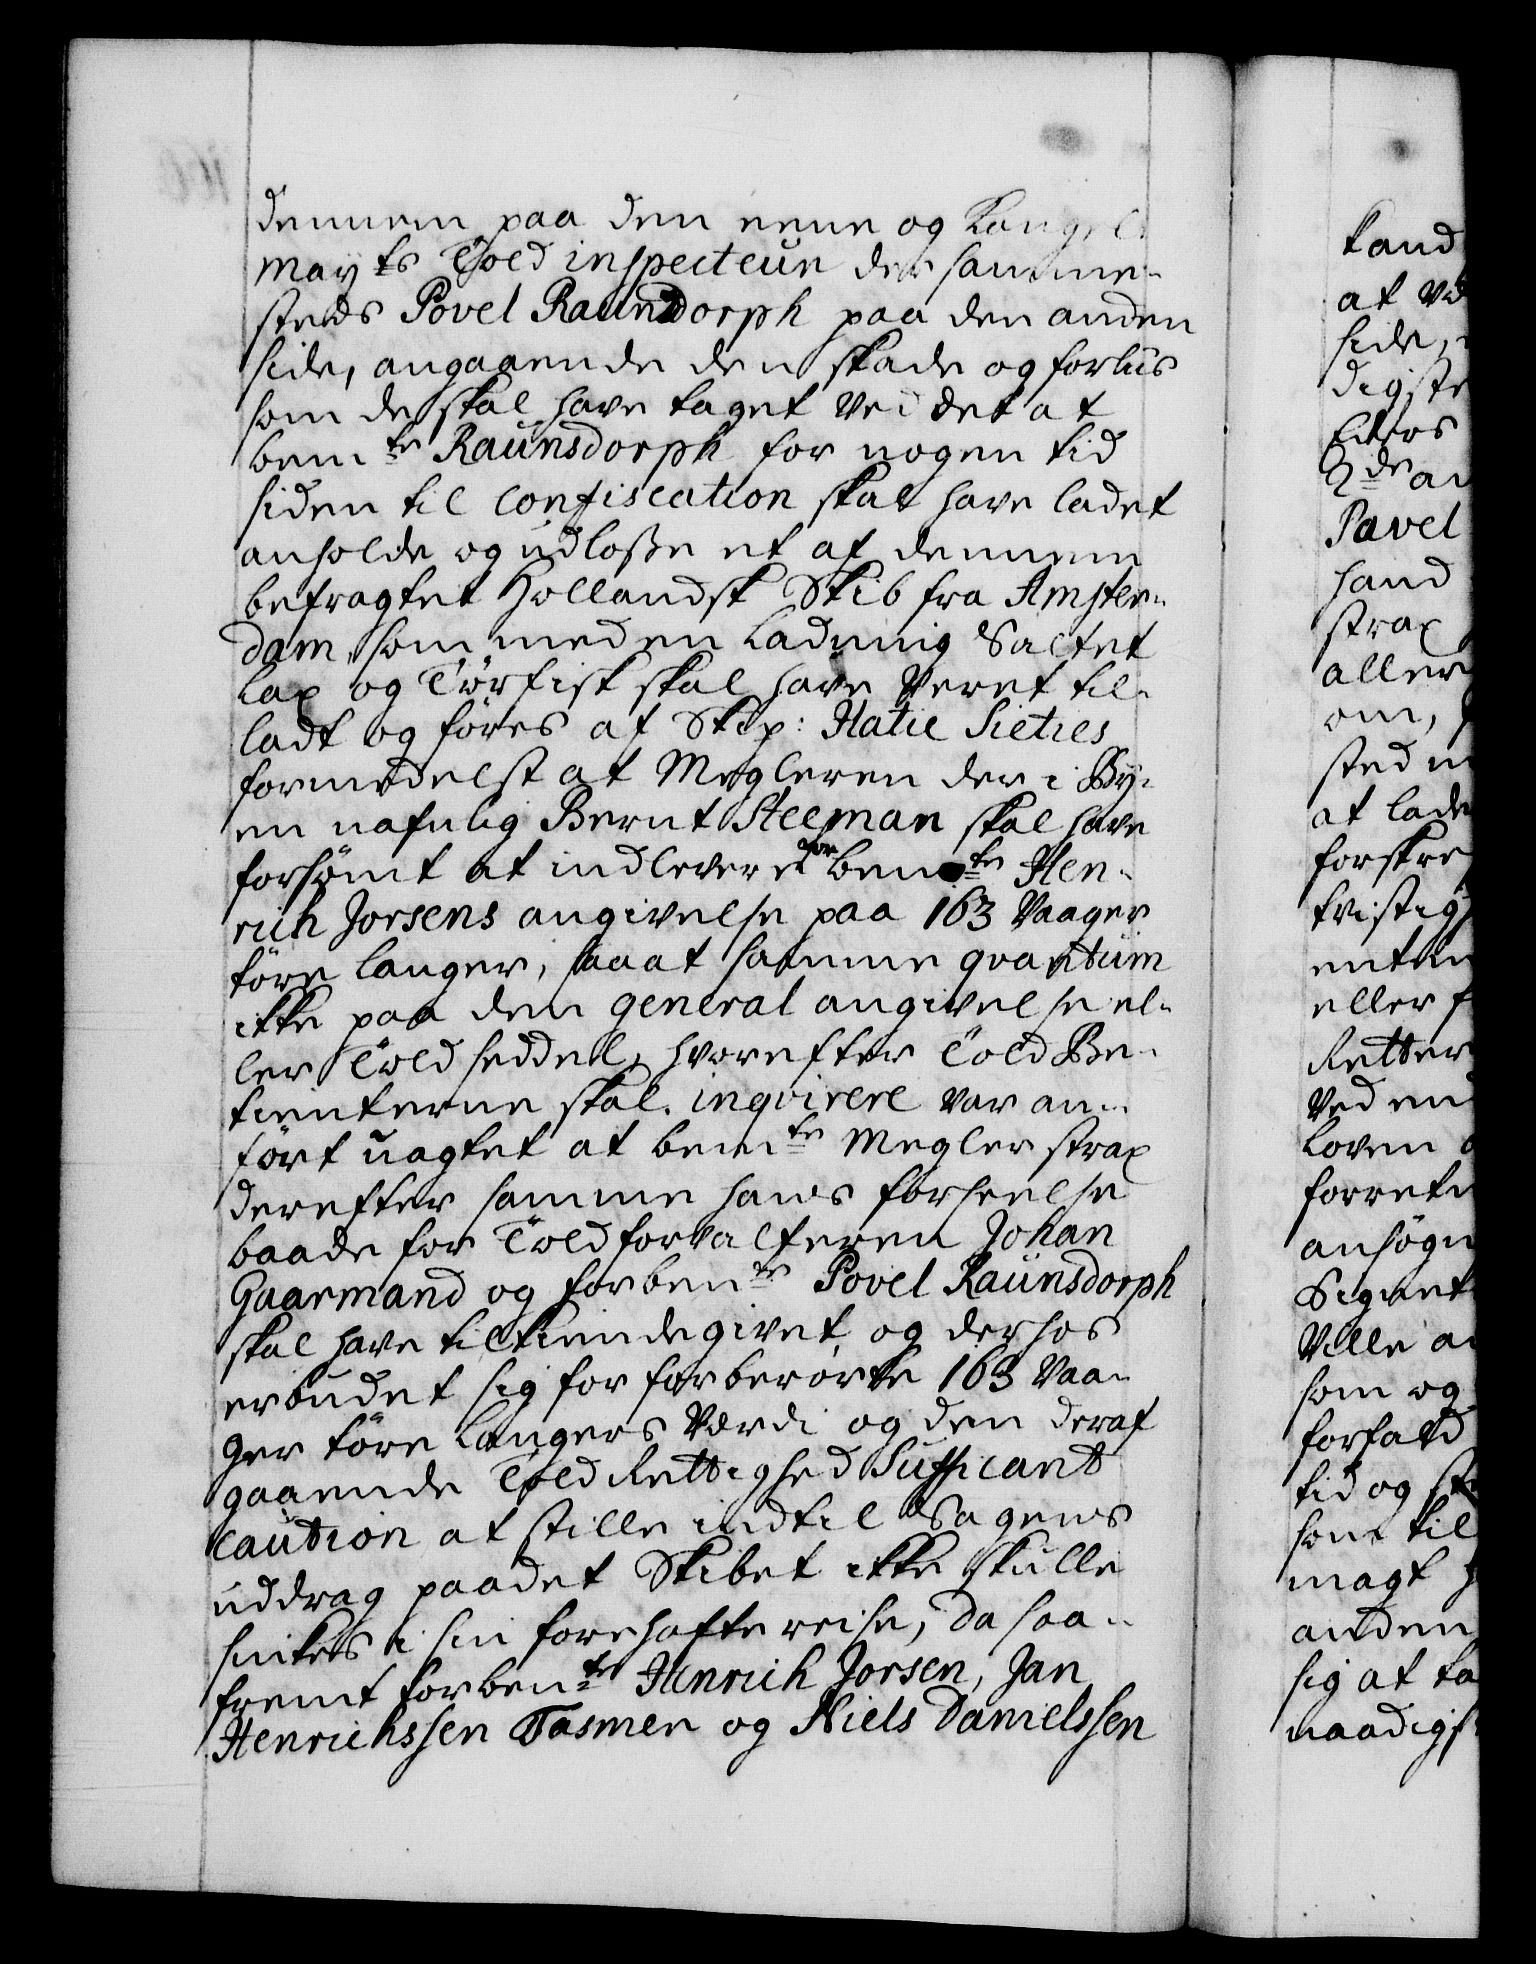 dennem paa den eene og Kongel.
May:ts Told inspecteur der samme-
steds Povel Raunsdorph paa den anden
side, angaaende den skade og forliis
som de skal have taget ved det at
bem:te Raunsdorph for nogen tid
siden til Confiscation skal have ladet
anholde og udlosse et af dennem
befragtet Hollandsk Skib fra Amster-
dam, som med en Ladning Saltet
Lax og Tørfisk skal have veret til-
ladt og føres af Skip: Hatie Sieties
formedelst at Megleren der i By-
en nafnlig Bernt Steeman skal have
forsømt at indlevere for bem:te Hen-
rich Jorsens angivelse paa 163 Vaager
tøre langer, saa at samme qvantum
ikke paa den general angivelse el-
ler Told seddel, hvorefter Told Be-
tienterne skal inqvirere var an-
ført uagtet at bem:te Megler strax
derefter samme hans forseelse
baade for Toldforvalteren Johan
Gaarmand og forbem:te Povel Raunsdorph
skal have tilkiendegivet og derhos
erbudet sig for forberørte 163 Vaa-
ger tøre Langers Værdi og den deraf
gaaende Told Rettighed Sufficant
Caution at stille indtil Sagens
uddrag paadet Skibet ikke skulle
sinkes i sin forehafte reise, da saa-
fremt forbem:te Henrich Jorsen, Jan
Henrichssen Tasmer og Niels Danielssen
tand
at
side,
digste
Eders
2de
Pavel
hand
strax
aller
om,
sted
at lade
forskre
fristig
enten
eller
Retter
Ved
Loven
forrett
ansøgn
Signet
Ville
som og
forfald
tid og
som til
magt
anden
sig at ta
naadigst